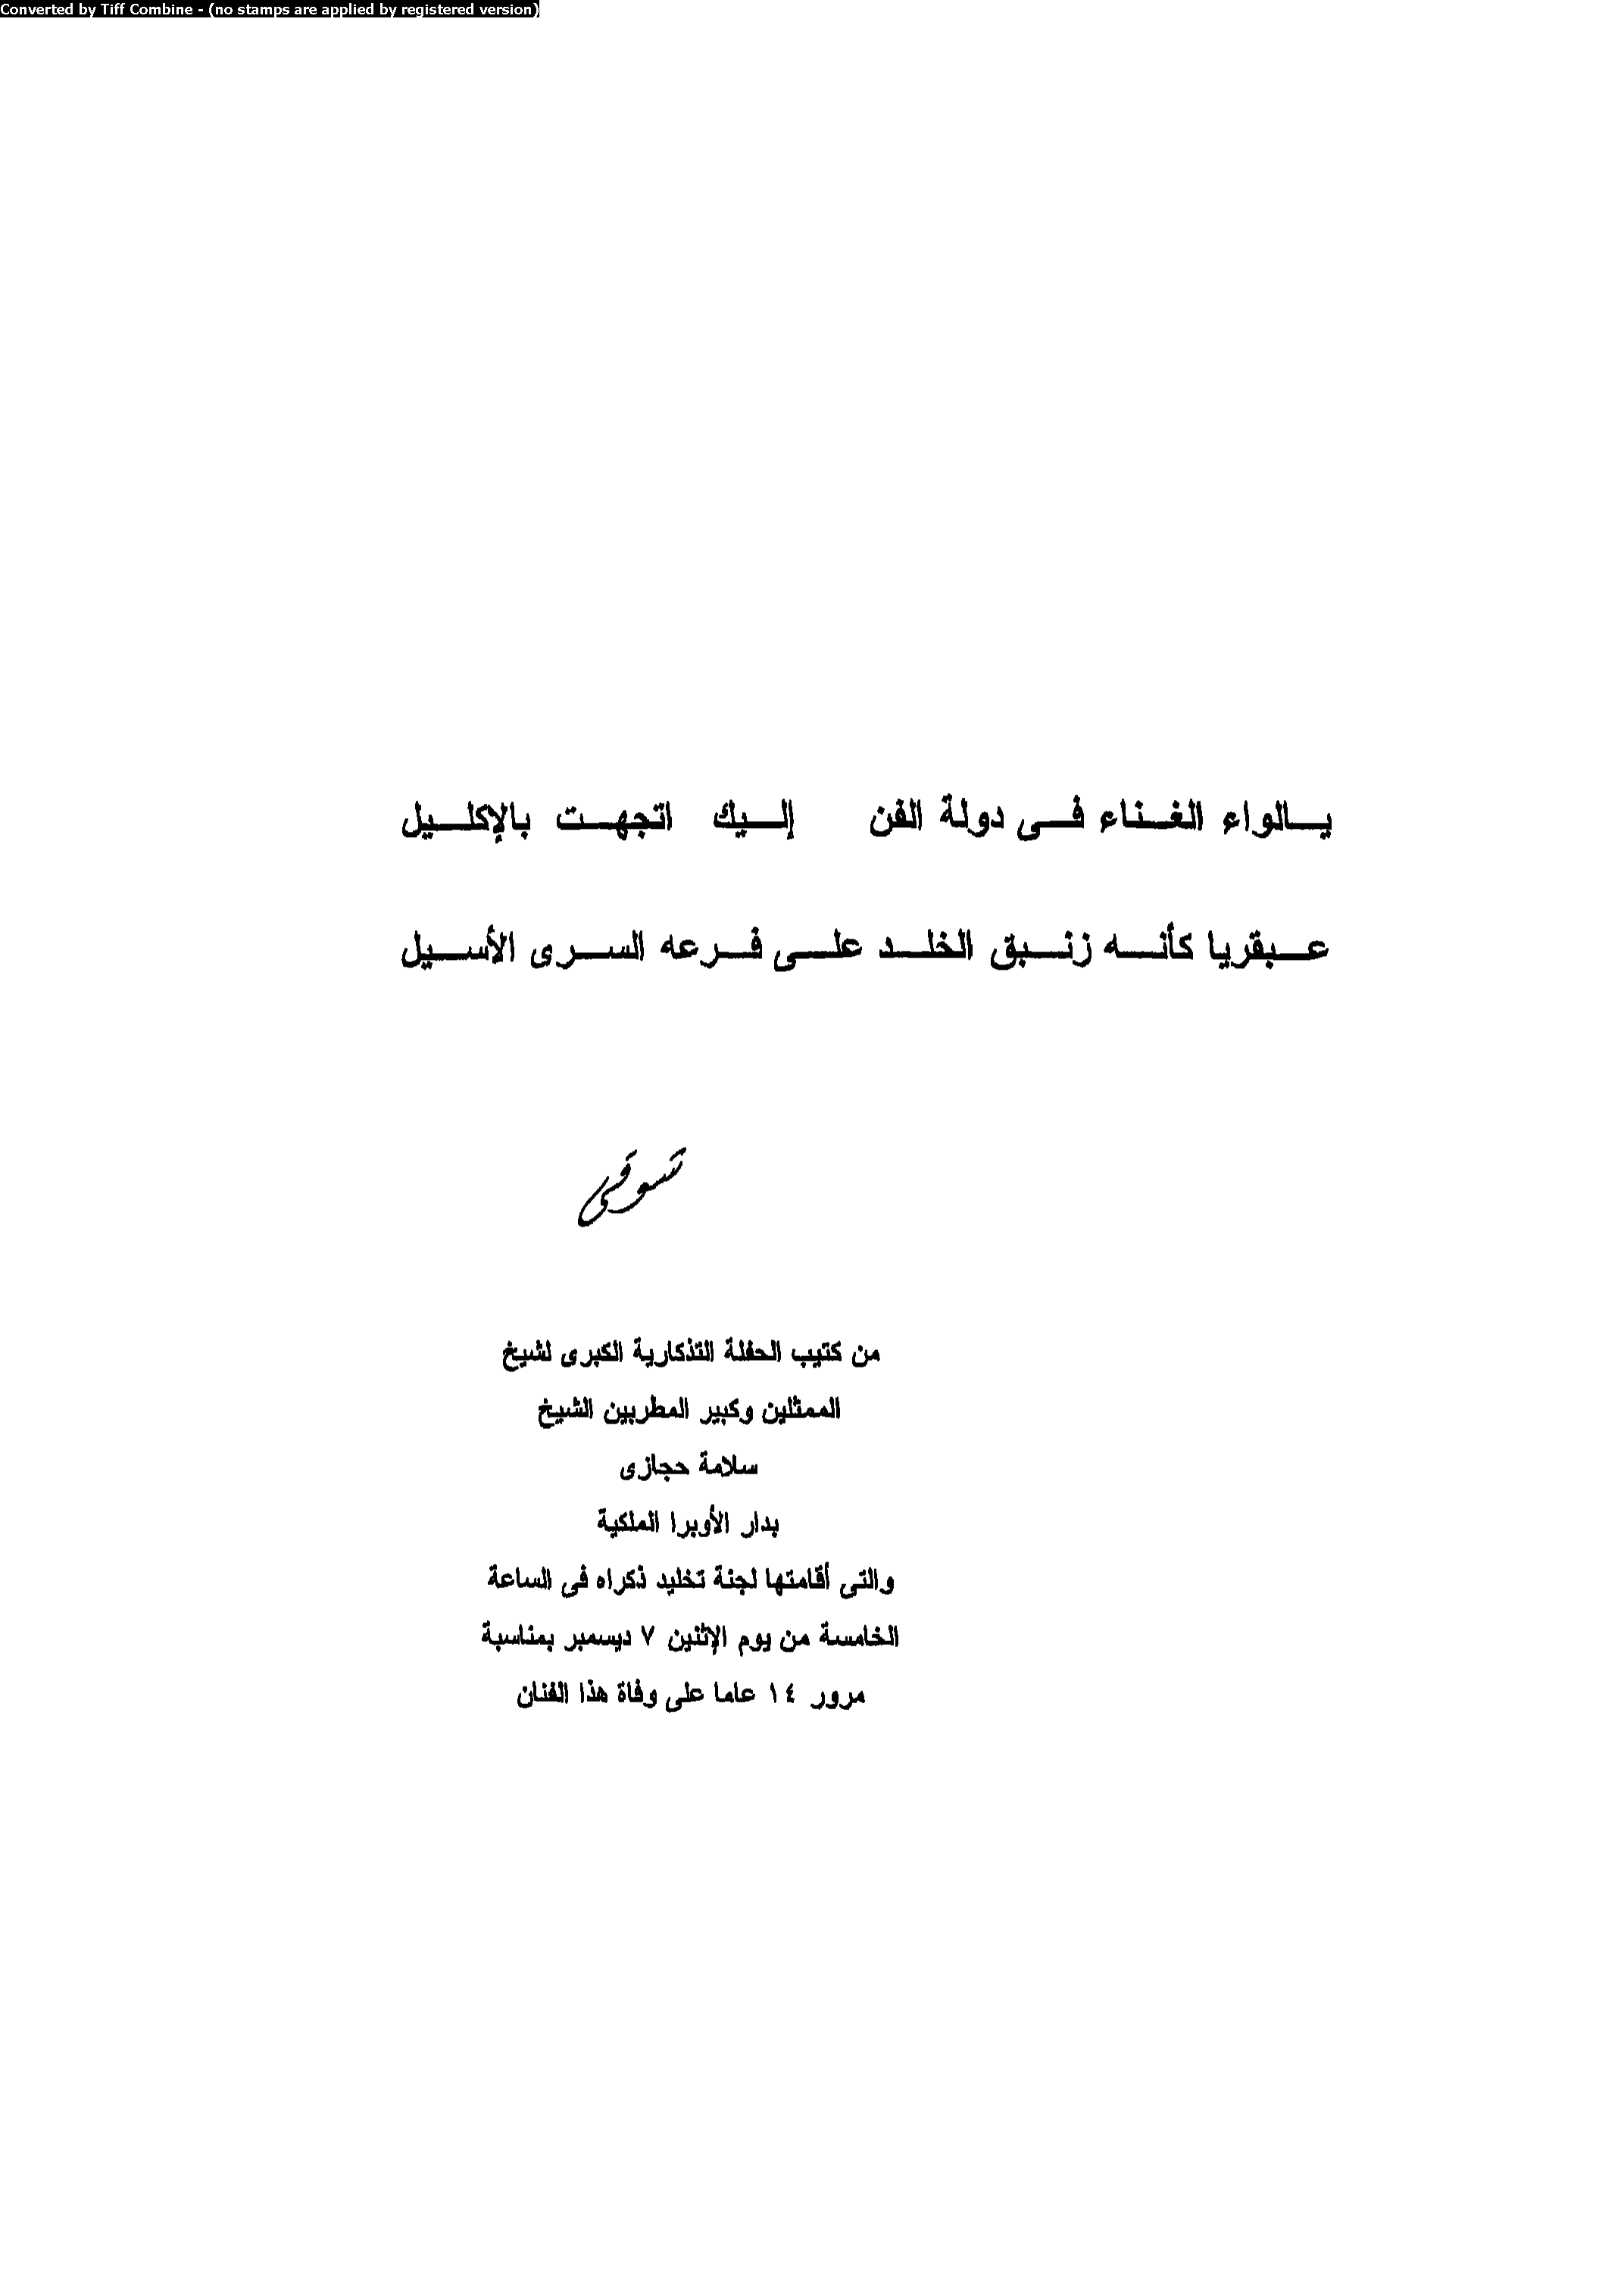 Converted by Tiff Combine - (no stamps are applied by registered version)
يالواء الغناء فى دولة الفن إليك اتجهت بالإكليل
عبقريا كأنه زنبق الخلد على فرعه السرى الأسيل
شوقى
من كتيب الحفلة التذكارية الكبرى لشيخ
الممثلين وكبير المطربين الشيخ
سلامة حجازى
بدار الأوبرا الملكية
والتى أقامتها لجنة تخليد ذكراه فى الساعة
الخامسة من يوم الإثنين ٧ ديسمبر بمناسبة
مرور ١٤ عاما على وفاة هذا الفنان